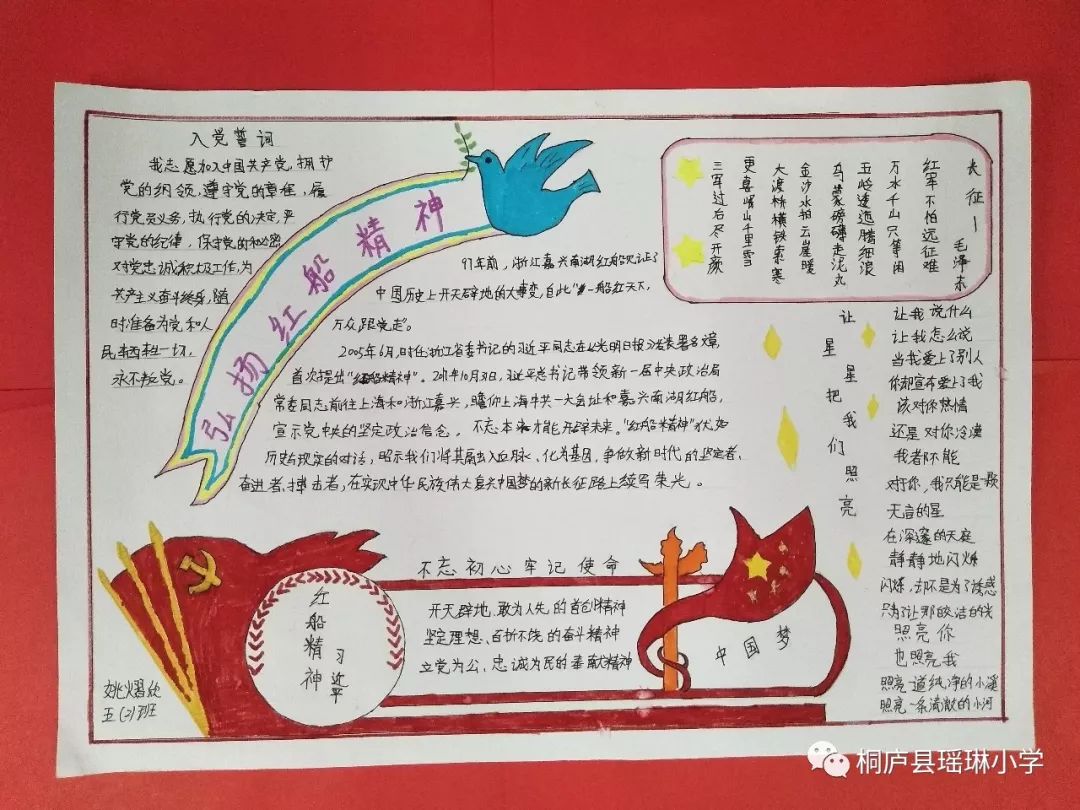 入党誓词
我志愿加入中国共产党,拥护
党的纲领,遵守党的章程,履
行党员义务,执行党的决定,严
守党的纪律,保守党的秘密,
对党忠诚,积极工作,为
共产主义奋斗终身,随
时准备为党和人
民牺牲一切,
永不叛党。
弘扬红船精神
97年前,浙江嘉兴南湖红船见证了
中国历史上开天辟地的大事变,自此“一船红天下,
万众跟党走。
2005年6月,时任浙江省委书记的习近平同志在《光明日报》发表署名文章,
首次提出“红船精神”。2017年10月31日,习近平总书记带领新一届中央政治局
常委同志前往上海和浙江嘉兴,瞻仰上海中共一大会址和嘉兴南湖红船,
宣示党中央的坚定政治信念。不忘本来才能开辟未来。“红船精神”犹如
历史与现实的对话,昭示我们将其融入血脉、化为基因,争做新时代的坚定者、
奋进者、搏击者,在实现中华民族伟大复兴中国梦的新长征路上续写荣光。
长征—毛泽东
红军不怕远征难
万水千山只等闲
五岭逶迤腾细浪
乌蒙磅礴走泥丸
金沙水拍云崖暖
大渡桥横铁索寒
更喜岷山千里雪
三军过后尽开颜
让星星把我们照亮
让我说什么
让我怎么说
当我爱上了别人
你却宣布爱上了我
该对你热情
还是对你冷漠
我者不能
对于你,我只能是一颗
无言的星
在深邃的天庭
静静地闪烁
闪烁,却不是为了诱惑
只为让那皎洁的光
照亮你
也照亮我
照亮一道纯净的小溪
照亮一条清澈的小河
不忘初心牢记使命
开天辟地、敢为人先的首创精神
坚定理想、百折不挠的奋斗精神
立党为公、忠诚为民的奉献精神
红船精神
习近平
中国梦
五(2)班
桐庐县瑶琳小学